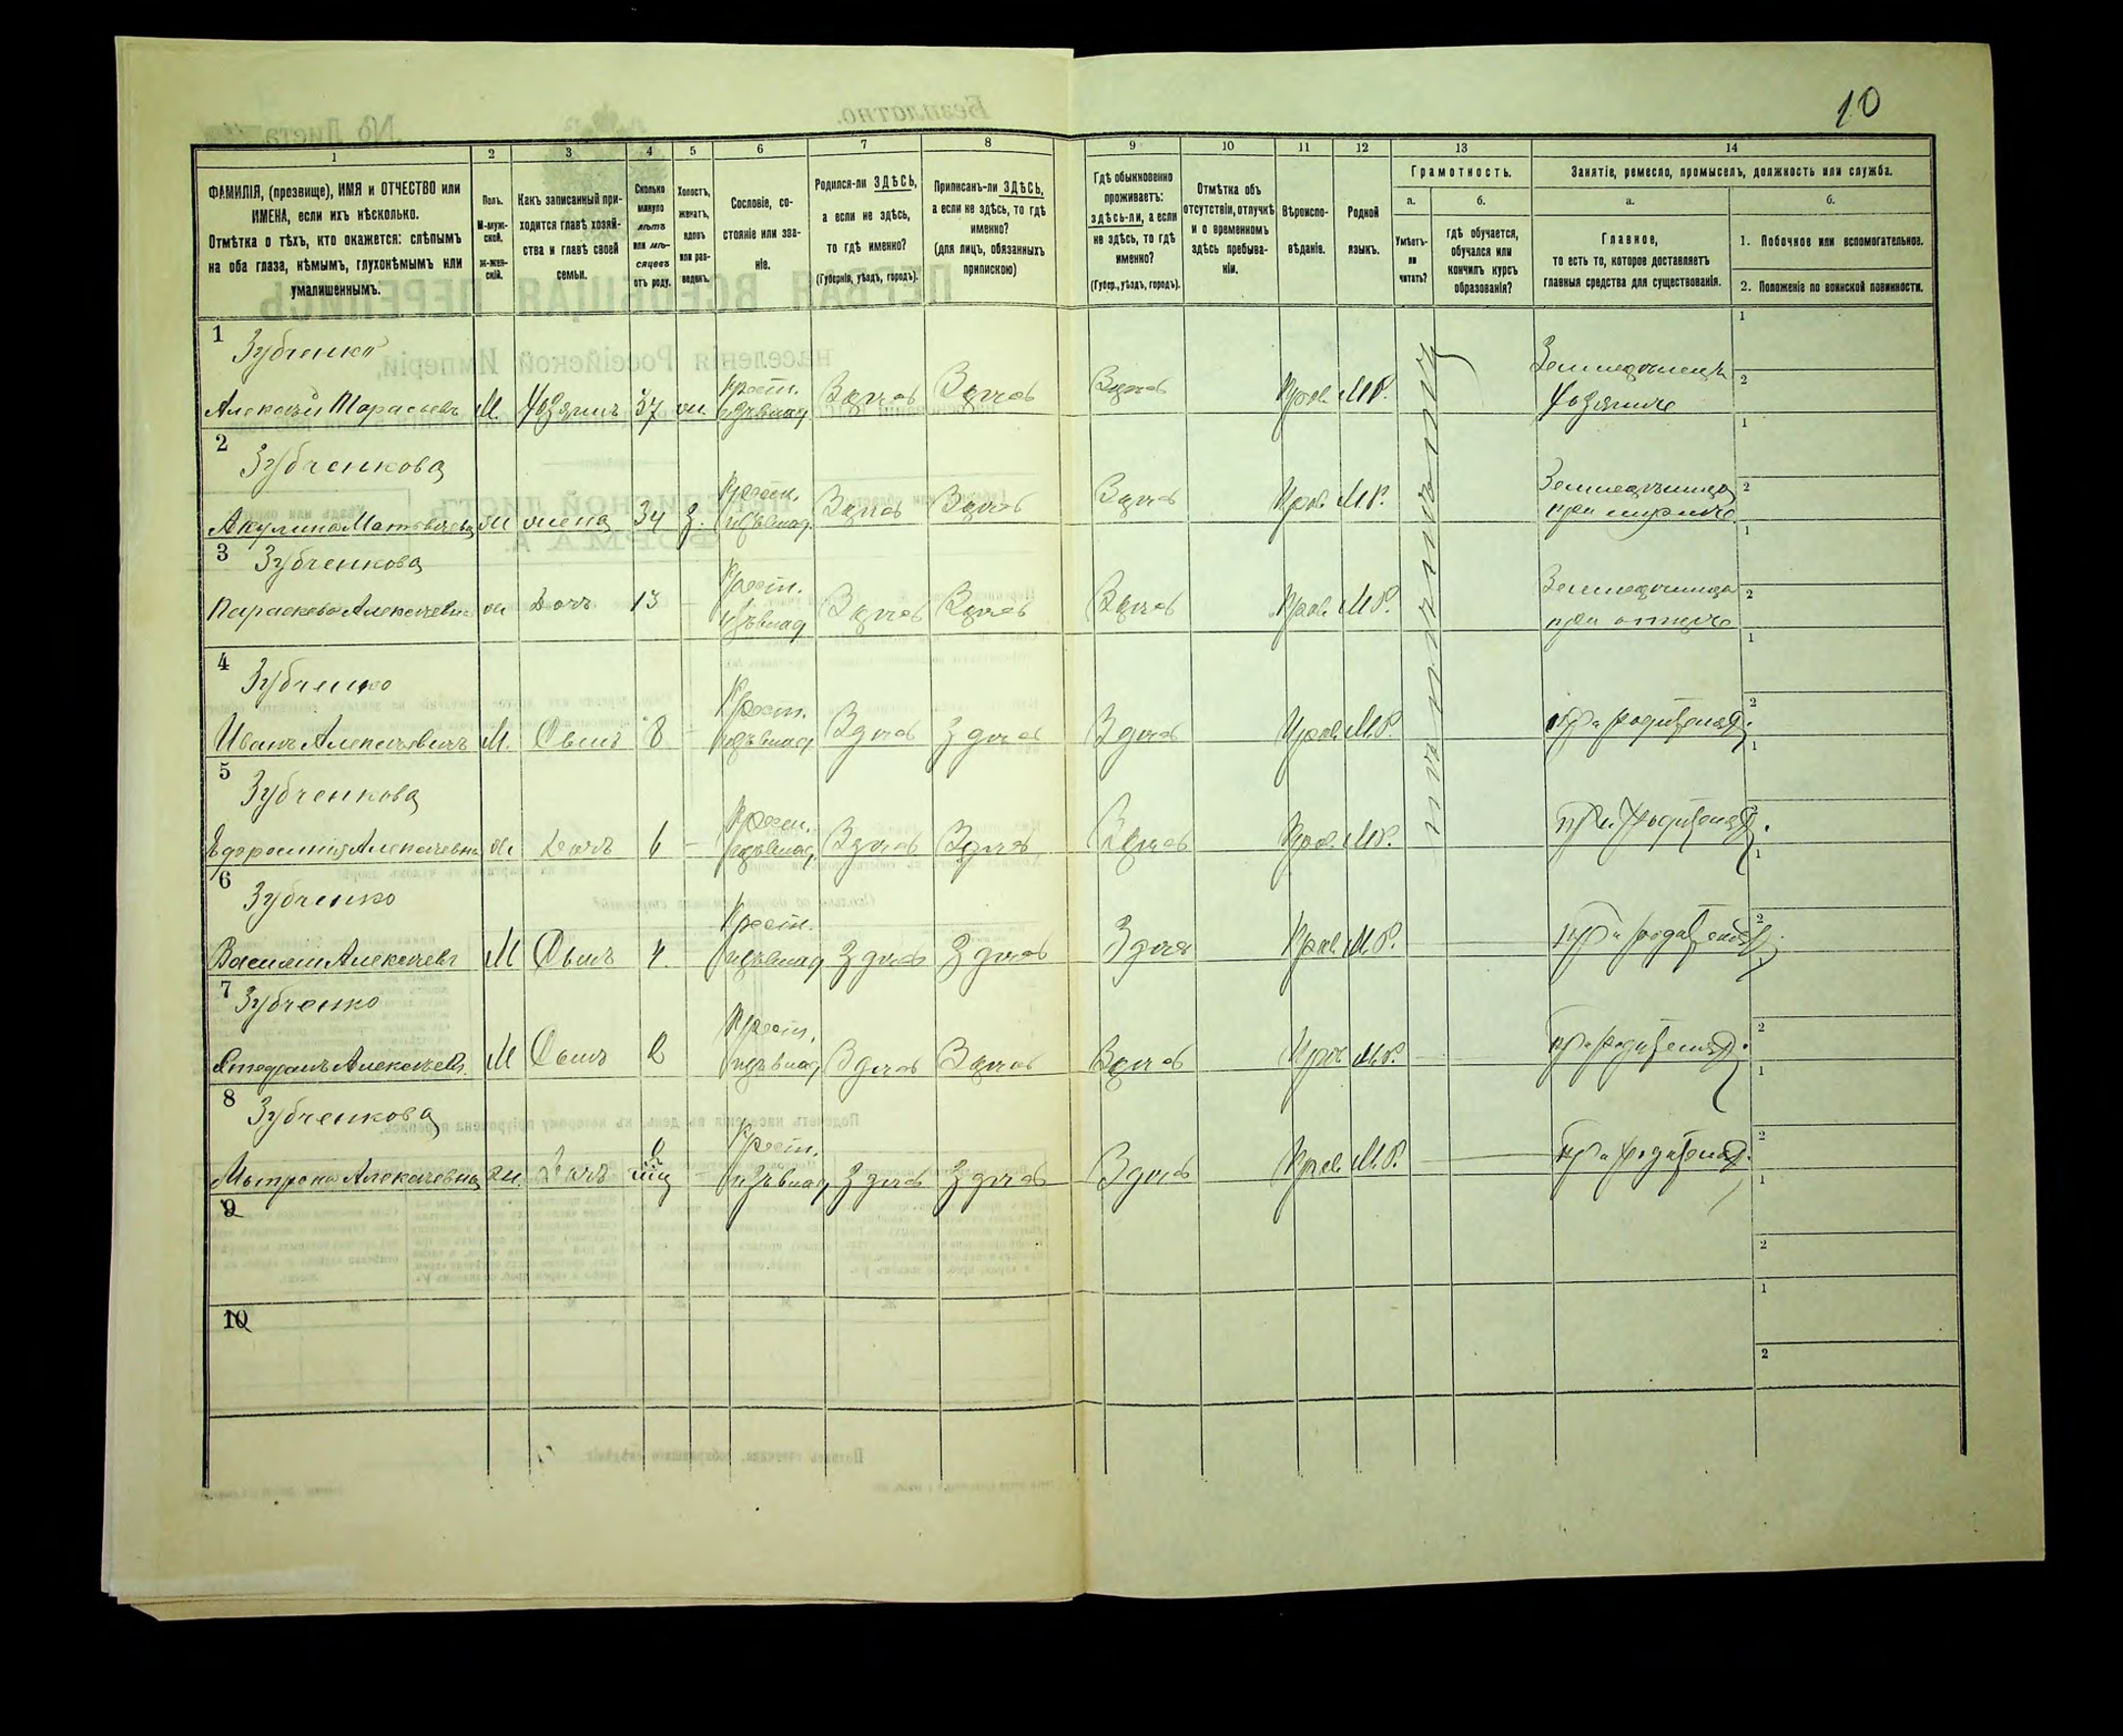 10
1 2 3 4 5 6 7 8 9 10 11 12 13 14
ФАМИЛІЯ, (прозвище), ИМЯ и ОТЧЕСТВО или
ИМЕНА, если ихъ нѣсколько.
Отмѣтка о тѣхъ, кто окажется: слѣпымъ
на оба глаза, нѣмымъ, глухонѣмымъ или
умалишеннымъ.
Полъ.
М-муж-
ской.
Ж-жен-
скій.
Какъ записанный при-
ходится главѣ хозяй-
ства и главѣ своей
семьи.
Сколько
минуло
лѣтъ
или мѣ-
сяцевъ
отъ роду.
Холостъ,
женатъ,
вдовъ
или раз-
веденъ.
Сословіе, со-
стояніе или зва-
ніе.
Родился-ли ЗДѢСЬ,
а если не здѣсь,
то гдѣ именно?
(Губернія, уѣздъ, городъ).
Приписанъ-ли ЗДѢСЬ,
а если не здѣсь, то гдѣ
именно?
(для лицъ, обязанныхъ
припискою)
Гдѣ обыкновенно
проживаетъ:
здѣсь-ли, а если
не здѣсь, то гдѣ
именно?
(Губер., уѣздъ, городъ).
Отмѣтка объ
отсутствіи, отлучкѣ
и о временномъ
здѣсь пребыва-
ніи.
Вѣроиспо-
вѣданіе.
Родной
языкъ.
Грамотность.
а.
Умѣетъ-
ли
читать?
б.
Гдѣ обучается,
обучался или
кончилъ курсъ
образованія?
Занятіе, ремесло, промыселъ, должность или служба.
а.
Главное,
то есть то, которое доставляетъ
главныя средства для существованія.
б.
1. Побочное или вспомогательное.
2. Положеніе по воинской повинности.
1 Зубченко
Алексѣй Тарасьевъ М. Хозяинъ 37 ж. Крест. Здѣсь Здѣсь Здѣсь Прав. М.Р. Земледѣлецъ 1
Хозяинъ 2
2 Зубченкова
Акулина Матвѣевна ж жена 34 з. Крест. Здѣсь Здѣсь Здѣсь Прав. М.Р. Земледѣлица 1
при мужѣ 2
3 Зубченкова
Параскева Алексѣевна ж Дочь 13 - Крест. Здѣсь Здѣсь Здѣсь Прав. М.Р. Земледѣлица 1
при отцѣ 2
4 Зубченко
Иванъ Алексѣевичъ М. Сынъ 8 - Крест. Здѣсь Здѣсь Здѣсь Прав. М.Р. при родителяхъ. 1
2
5 Зубченкова
Алексѣевна ж. Дочь 6 - Крест. Здѣсь Здѣсь Здѣсь Прав. М.Р. при родителяхъ. 1
2
6 Зубченко
Василій Алексѣевъ М Сынъ 4. Крест. Здѣсь Здѣсь Здѣсь Прав. М.Р. при родителяхъ. 1
2
7 Зубченко
Стефанъ Алексѣевъ М Сынъ 2 Крест. Здѣсь Здѣсь Здѣсь Прав. М.Р. при родителяхъ. 1
2
8 Зубченкова
Матрона Алексѣевна ж. Дочь - Крест. Здѣсь Здѣсь Здѣсь Прав. М.Р. при родителяхъ. 1
2
9 1
2
10 1
2